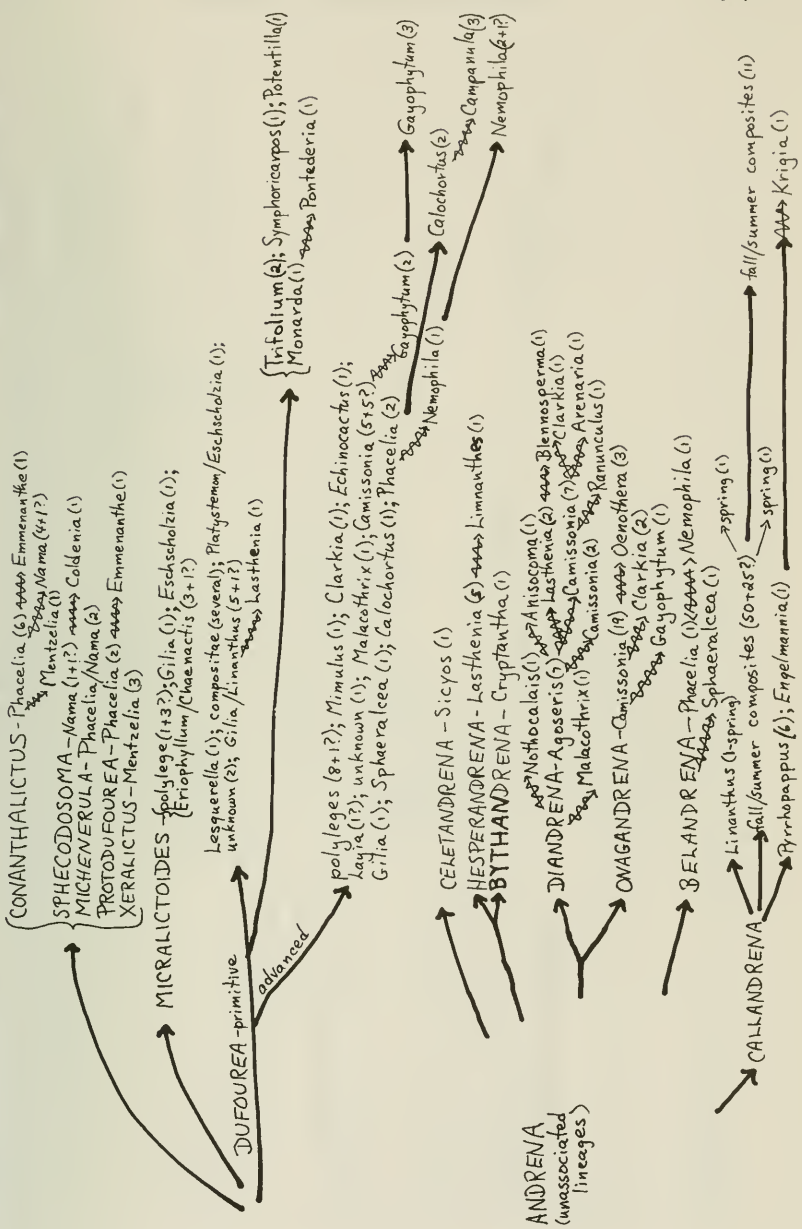 CONANTHALICTUS - Phacelia (6) Emmenanthe (1)
Nama (4+1?)
Mentzelia (1)
SPHECODOSOMA - Nama (1+1?) Coldenia (1)
MICHENERULA - Phacelia/Nama (2)
PROTODUFOUREA - Phacelia (2) Emmenanthe (1)
XERALICTUS - Mentzelia (3)
MICRALICTOIDES - polylege (1+3?); Gilia (1); Eschscholzia (1);
Eriophyllum/Chaenactis (3+1?)
DUFOUREA - primitive
Lesquerella (1); compositae (several); Platystemon/Eschscholzia (1);
unknown (2); Gilia/Linanthus (5+1?)
Lasthenia (1)
Trifolium (2); Symphoricarpos (1); Potentilla (1)
Monarda (1) Pontederia (1)
advanced
polyleges (8+1?); Mimulus (1); Clarkia (1); Echinocactus (1);
Layia (1?); unknown (1); Malacothrix (1); Camissonia (5+5?)
Gilia (1); Sphaeralcea (1); Calochortus (1); Phacelia (2)
Gayophytum (2)
Gayophytum (3)
Nemophila (1)
Calochortus (2)
Campanula (3)
Nemophila (2+1?)
ANDRENA
(unassociated
lineages)
CELETANDRENA - Sicyos (1)
HESPERANDRENA - Lasthenia (5) Limnanthes (1)
BYTHANDRENA - Cryptantha (1)
Nothocalais (1) Anisocoma (1)
DIANDRENA - Agoseris (7) Lasthenia (2) Blennosperma (1)
Clarkia (1)
Camissonia (7) Arenaria (1)
Malacothrix (1) Camissonia (2) Ranunculus (1)
ONAGANDRENA - Camissonia (19) Oenothera (3)
Clarkia (2)
Gayophytum (1)
BELANDRENA - Phacelia (1) Nemophila (1)
Sphaeralcea (1)
CALLANDRENA
Linanthus (1-spring)
spring (1)
fall/summer composites (50+25?)
fall/summer composites (11)
spring (1)
Pyrrhopappus (6); Engelmannia (1)
Krigia (1)